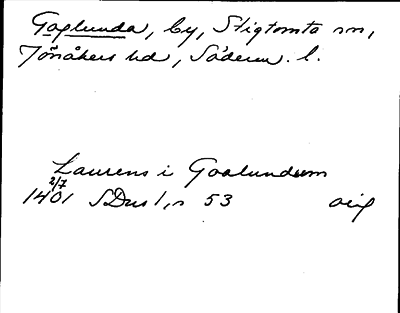 Gaglunda, by, Stigtomta sn,
Jönåkers hd, Söderm. l.
Laurens i Goalundum
2/7
1401 SDns 1, n 53 orig